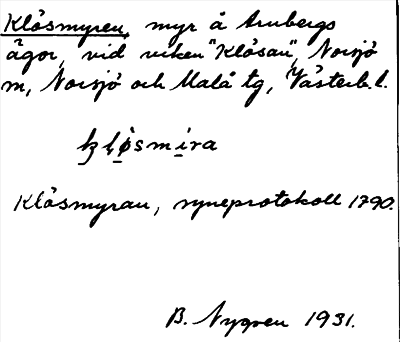 Klösmyren, myr å Arnbergs
ägor, vid viken "Klösan", Norsjö
sn, Norsjö och Malå tg, Västerb. l.
kløsmira
Klösmyran, syneprotokoll 1790.
B. Nygren 1931.